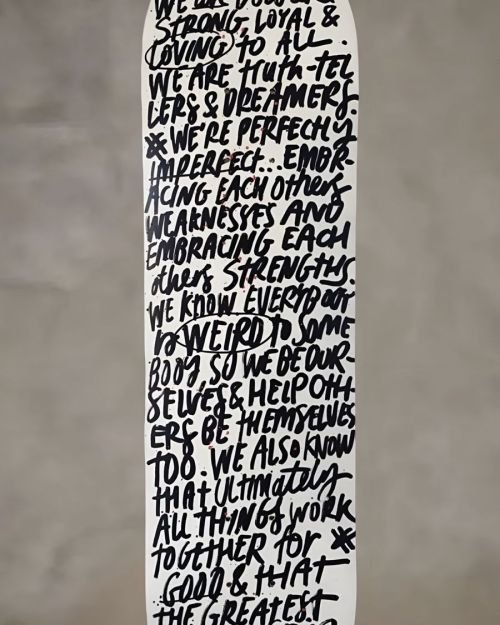 WE ARE
STRONG, LOYAL &
LOVING TO ALL.
WE ARE truth-TEL
LERS & DREAMERS.
* WE'RE PERFECtLY
IMPERFECt... EMBR-
ACING EACH Others
WEAKNESSES AND
EMBRACING EACH
others STRENGTHS.
WE KNOW EVERYBODY
is WEIRD to SOME
BODY SO WE BE OUR-
SELVES & HELP OTH-
ERS BE tHEMSELVES
TOO. WE ALSO KNOW
tHAt ULtimately
ALL THINGS WORK
TOGETHER for *
GOOD & tHAT
tHE GREATEST